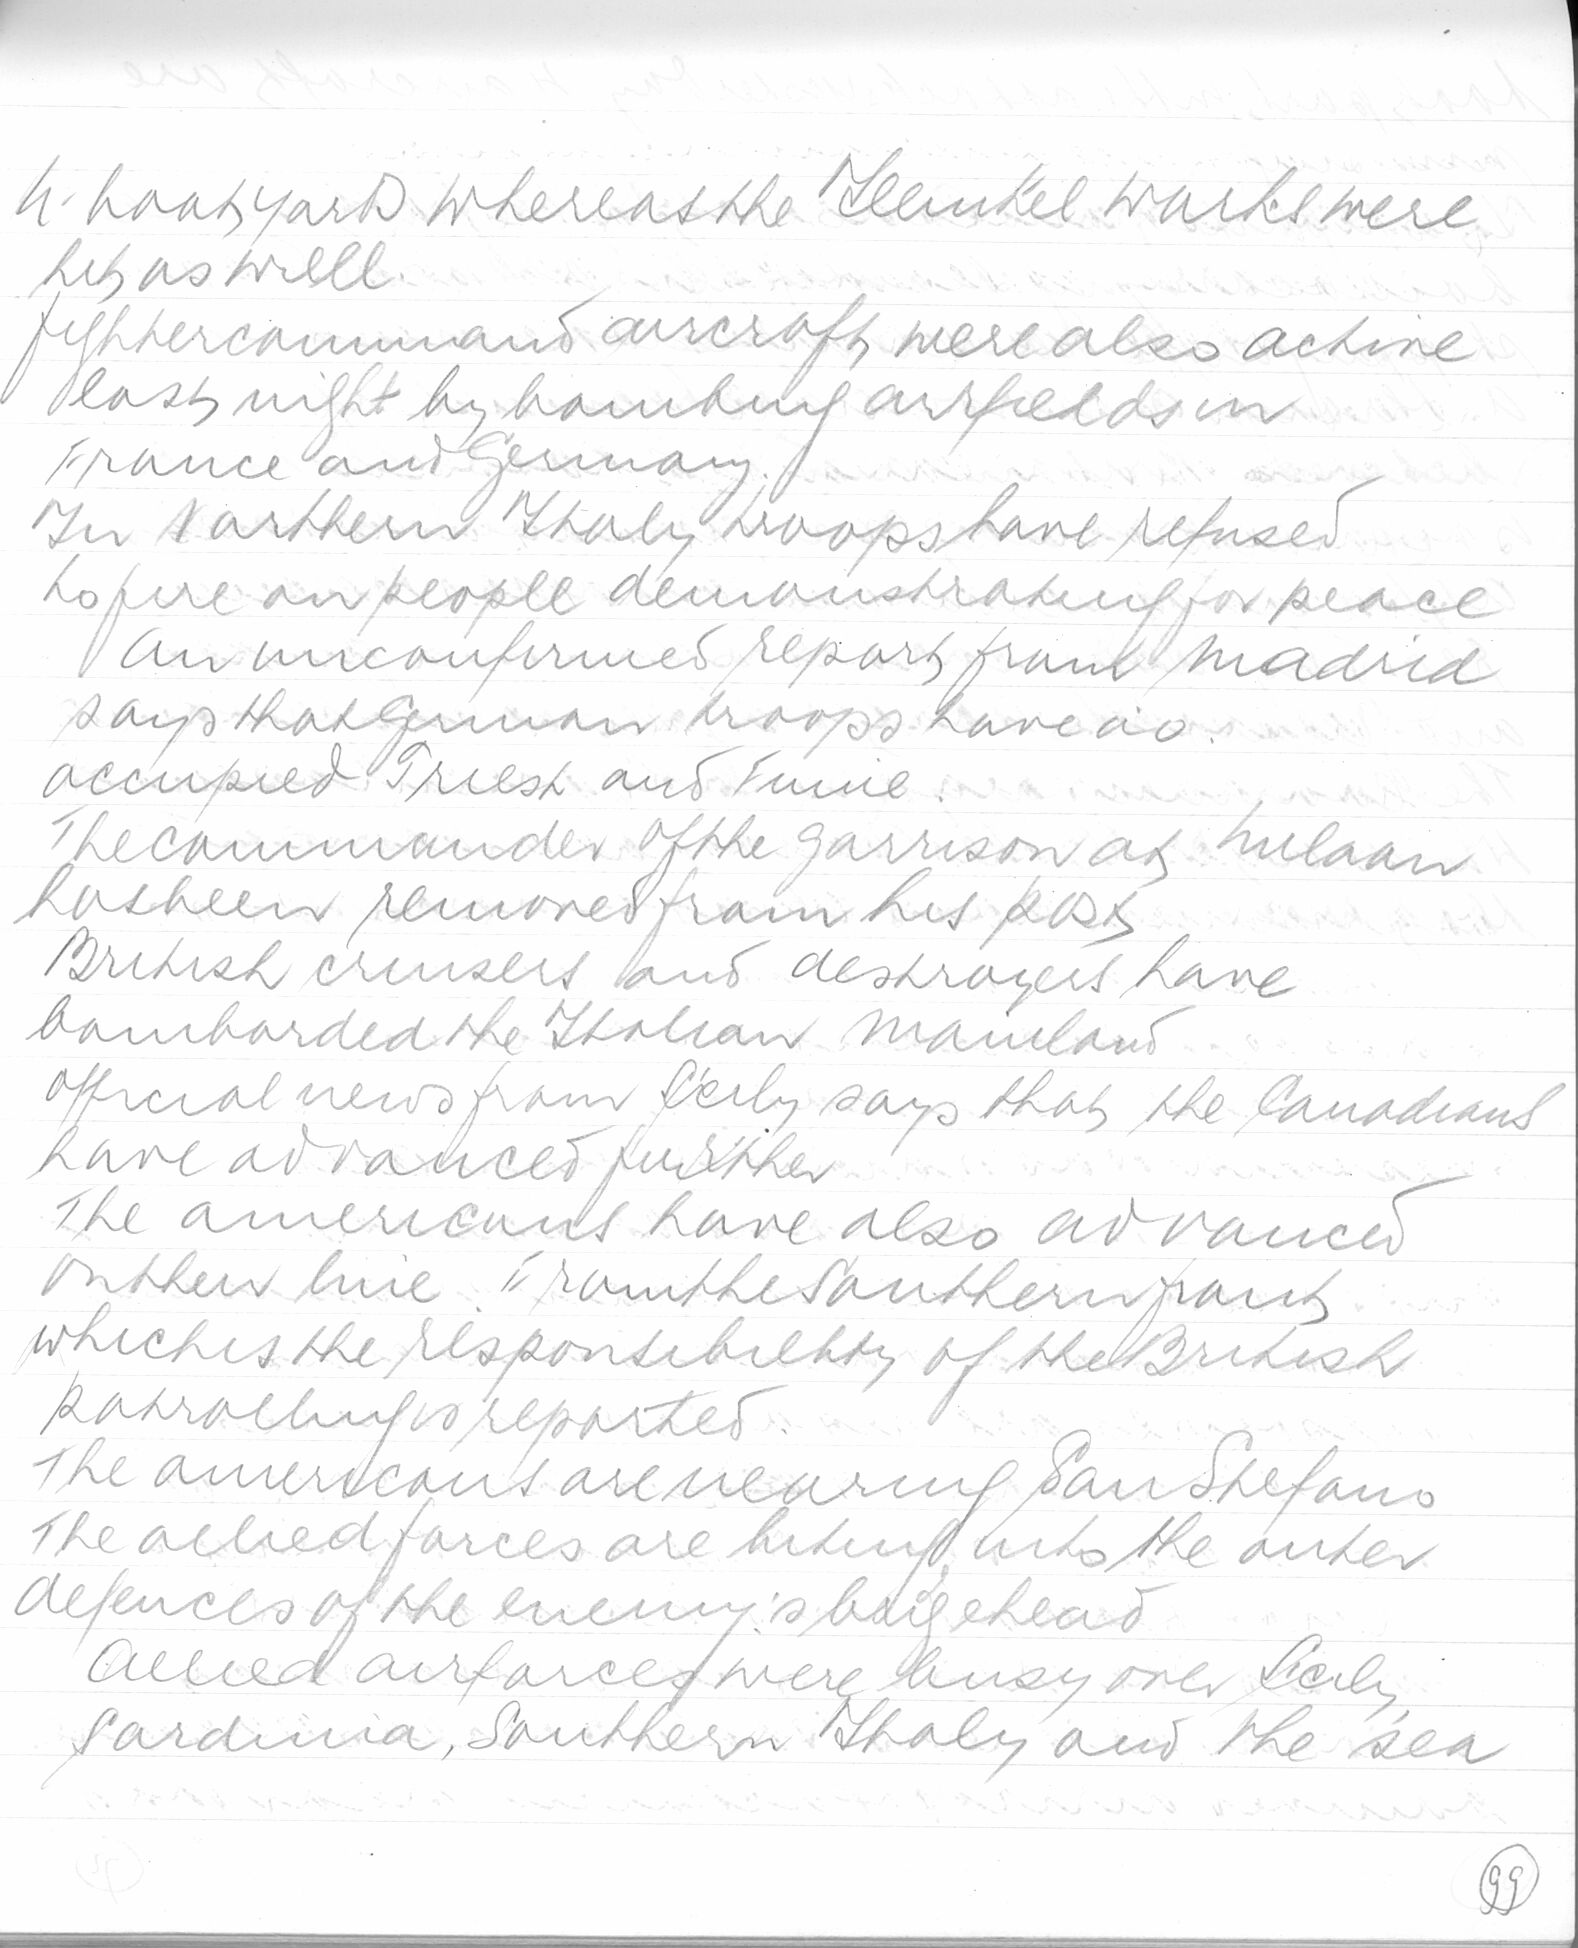 U. boat yard whereas the Heinkel works were
hit as well.
fighter command aircraft were also active
last night by bombing airfields in
France and Germany.
In Northern Italy troops have refused
to fire on people demonstrating for peace
An unconfirmed report from Madrid
says that German troops have
occupied Triest and Fiume.
The commander of the garrison at Milaan
has been removed from his post
British cruisers and destroyers have
bombarded the Italian Mainland
Official news from Sicily says that the Canadians
have advanced further
The americans have also advanced
on their line. From the Southern front
which is the responsibility of the British
patrolling is reported.
The americans are nearing San Stefano
The allied forces are biting into the outer
defences of the enemy's brigehead
Allied airforces were busy over Sicily,
Sardinia, Southern Italy and the sea
99